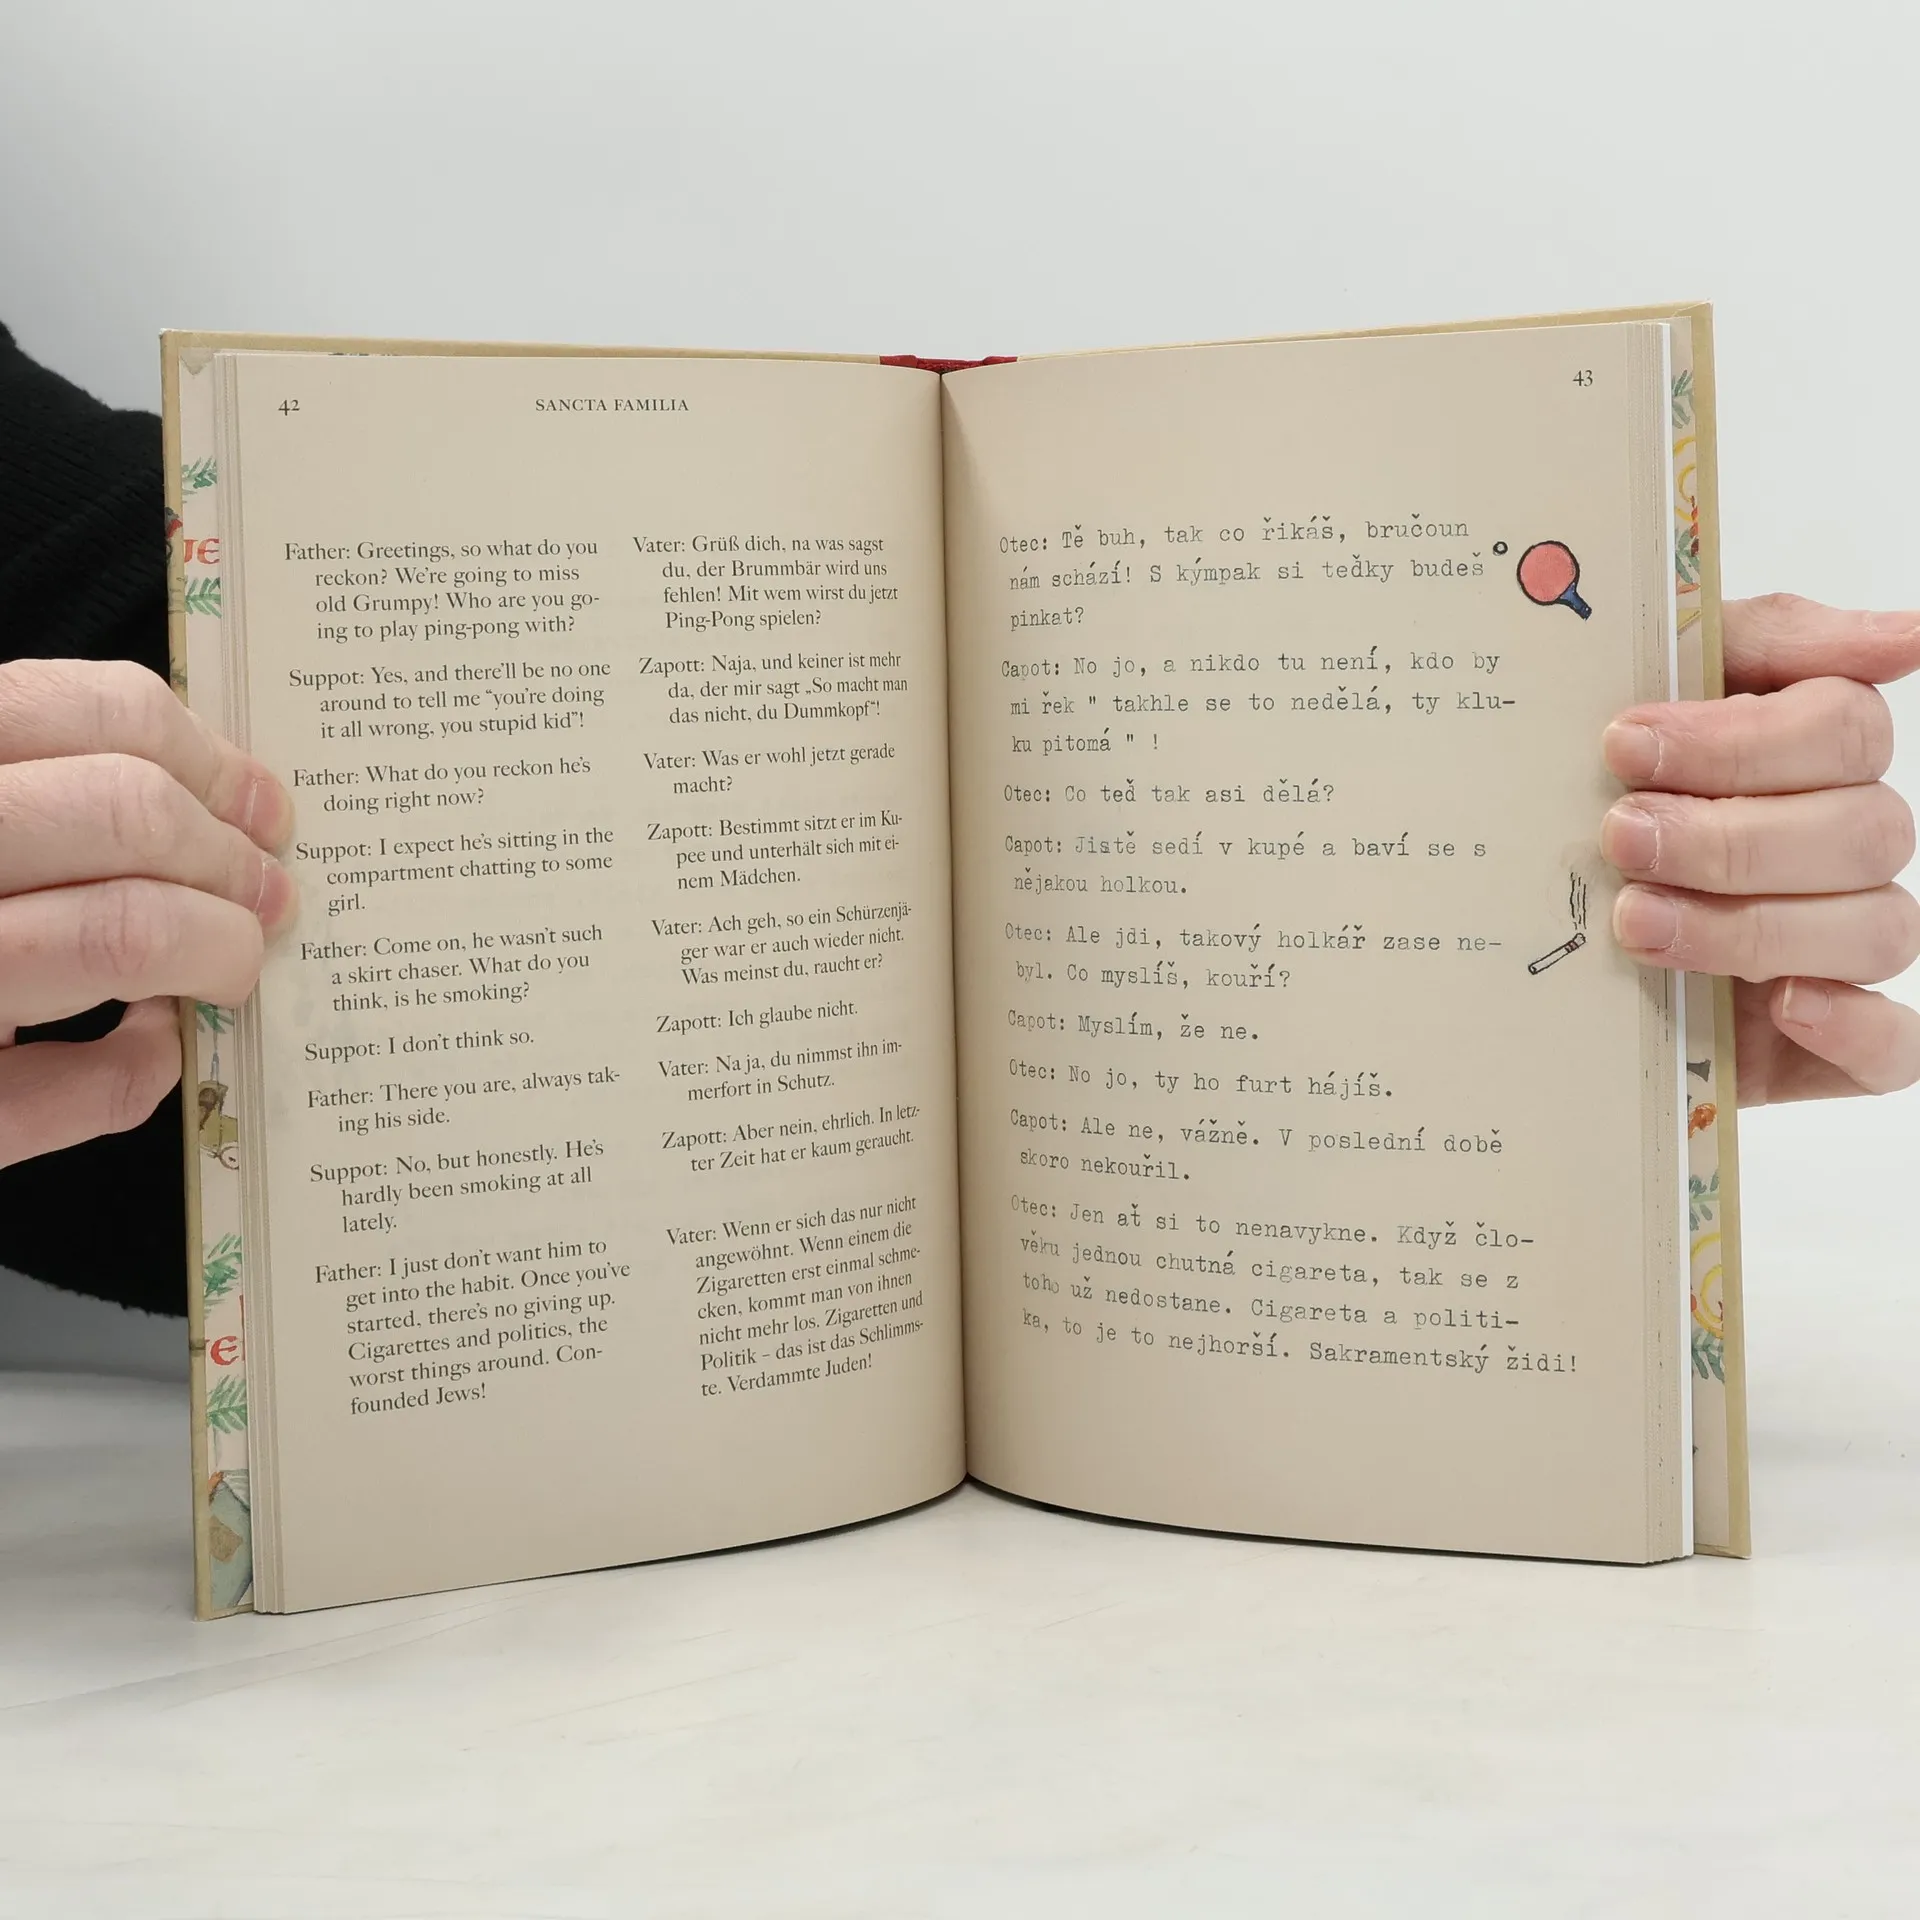 42
SANCTA FAMILIA
Father: Greetings, so what do you
reckon? We're going to miss
old Grumpy! Who are you go-
ing to play ping-pong with?
Suppot: Yes, and there'll be no one
around to tell me “you're doing
it all wrong, you stupid kid”!
Father: What do you reckon he's
doing right now?
Suppot: I expect he's sitting in the
compartment chatting to some
girl.
Father: Come on, he wasn't such
a skirt chaser. What do you
think, is he smoking?
Suppot: I don't think so.
Father: There you are, always tak-
ing his side.
Suppot: No, but honestly. He's
hardly been smoking at all
lately.
Father: I just don't want him to
get into the habit. Once you've
started, there's no giving up.
Cigarettes and politics, the
worst things around. Con-
founded Jews!
Vater: Grüß dich, na was sagst
du, der Brummbär wird uns
fehlen! Mit wem wirst du jetzt
Ping-Pong spielen?
Zapott: Naja, und keiner ist mehr
da, der mir sagt „So macht man
das nicht, du Dummkopf“!
Vater: Was er wohl jetzt gerade
macht?
Zapott: Bestimmt sitzt er im Ku-
pee und unterhält sich mit ei-
nem Mädchen.
Vater: Ach geh, so ein Schürzenjä-
ger war er auch wieder nicht.
Was meinst du, raucht er?
Zapott: Ich glaube nicht.
Vater: Na ja, du nimmst ihn im-
merfort in Schutz.
Zapott: Aber nein, ehrlich. In letz-
ter Zeit hat er kaum geraucht.
Vater: Wenn er sich das nur nicht
angewöhnt. Wenn einem die
Zigaretten erst einmal schme-
cken, kommt man von ihnen
nicht mehr los. Zigaretten und
Politik – das ist das Schlimms-
te. Verdammte Juden!
43
Otec: Tě buh, tak co řikáš, bručoun
nám schází! S kýmpak si teďky budeš
pinkat?
Capot: No jo, a nikdo tu není, kdo by
mi řek " takhle se to nedělá, ty klu-
ku pitomá " !
Otec: Co teď tak asi dělá?
Capot: Jistě sedí v kupé a baví se s
nějakou holkou.
Otec: Ale jdi, takový holkář zase ne-
byl. Co myslíš, kouří?
Capot: Myslím, že ne.
Otec: No jo, ty ho furt hájíš.
Capot: Ale ne, vážně. V poslední době
skoro nekouřil.
Otec: Jen ať si to nenavykne. Když člo-
věku jednou chutná cigareta, tak se z
toho už nedostane. Cigareta a politi-
ka, to je to nejhorší. Sakramentský židi!